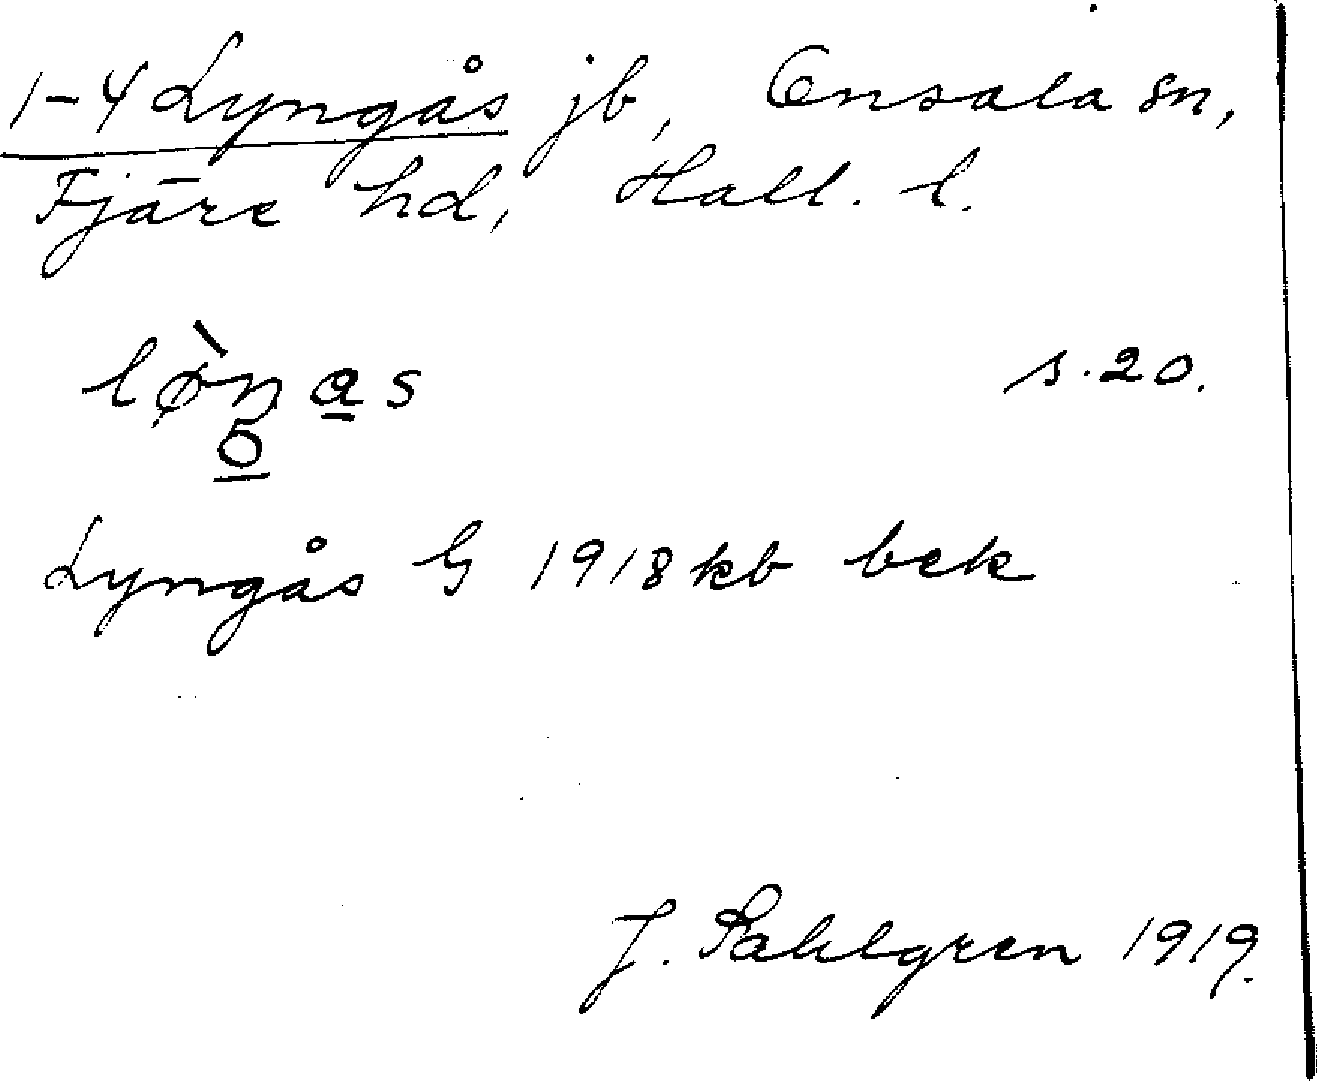 1-4 Lyngås jb, Onsala sn,
Fjäre hd, Hall. l.
lø̀ŋas s. 20.
5
Lyngås G 1918 kb bek
J. Sahlgren 1919.